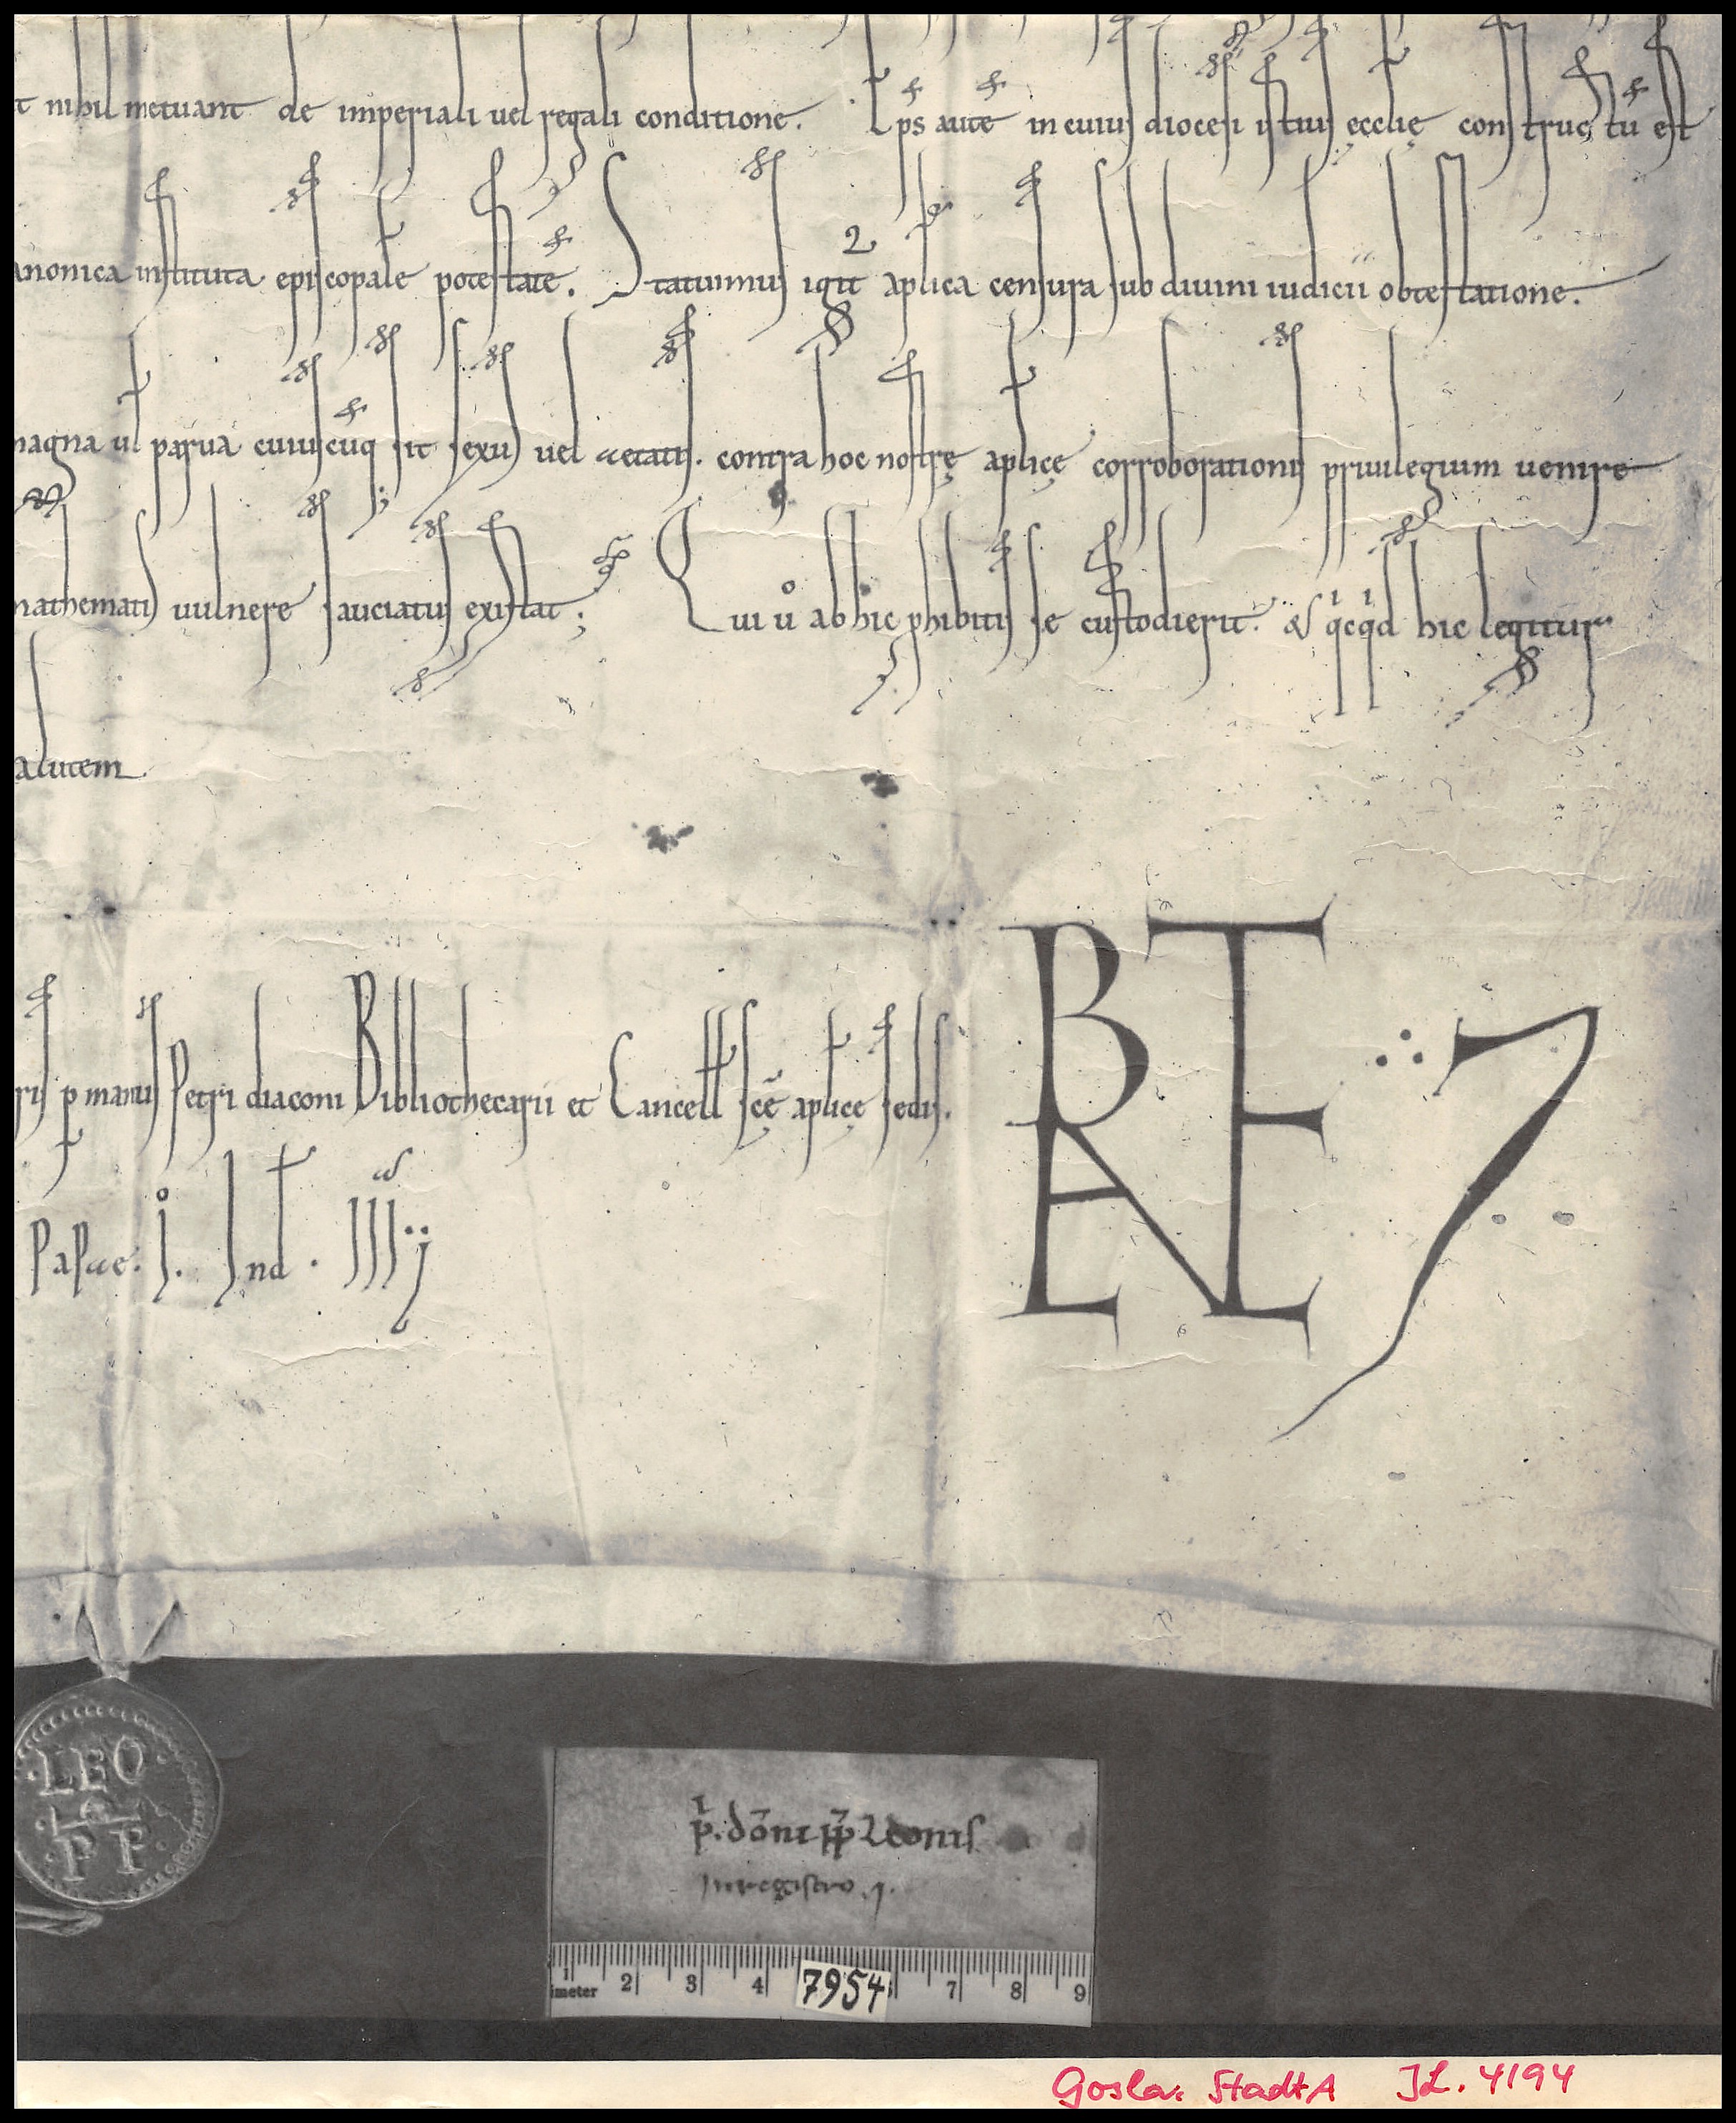 t nihil metuant de imperiali uel regali conditione. Ips autē in cuius diocesi istius ęcclię constructū est
anonica instituta episcopale potestatē. Statuimus igit aplica censura sub diuini iudicii obtestatione.
magna ul parua cuiuscūq sit sexus uel aetatis. contra hoc nostrę aplicę corroborationis priuilegium uenire
nathematis uulnere sauciatus existat; Qui ů ab hic phibitis se custodierit. & qͥcqͥd hic legitur
alutem
ris p manus Petri diaconi Bibliothecarii et Cancell scę̄ aplicę sedis.
PaPae: I. Ind. IIII
BENE VALETE
LEO
PP
pͥ. dōni pp Leonis
In registro. I.
meter 1 2 3 4 7954 7 8 9
Goslar StadtA JL. 4194